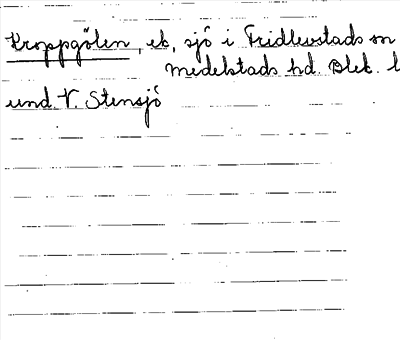 Kroppgölen, eb, sjö i Fridlevstads sn
Medelstads hd. Blek. l
und. V. Stensjö